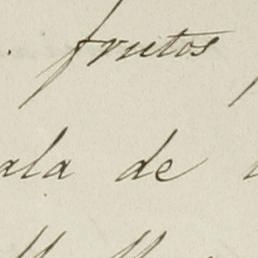 frutos
ala de